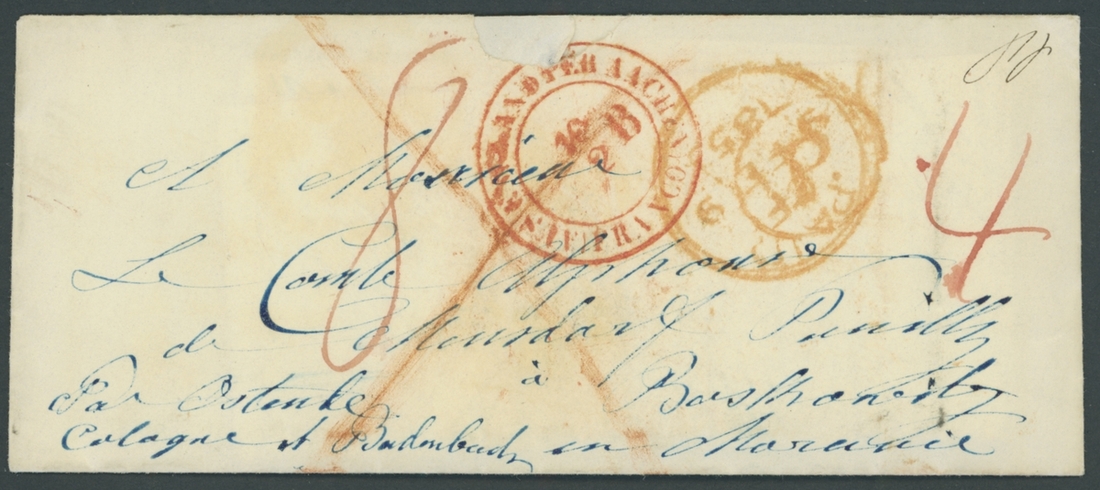 8
ENGLAND PER AACHEN
B
FRANCO
PAID
4
A Monsieur
Le Comte Alphonse
de Mensdorf Pouilly
à Boskowitz
Par Ostende
Cologne et Bodenbach en Moravie